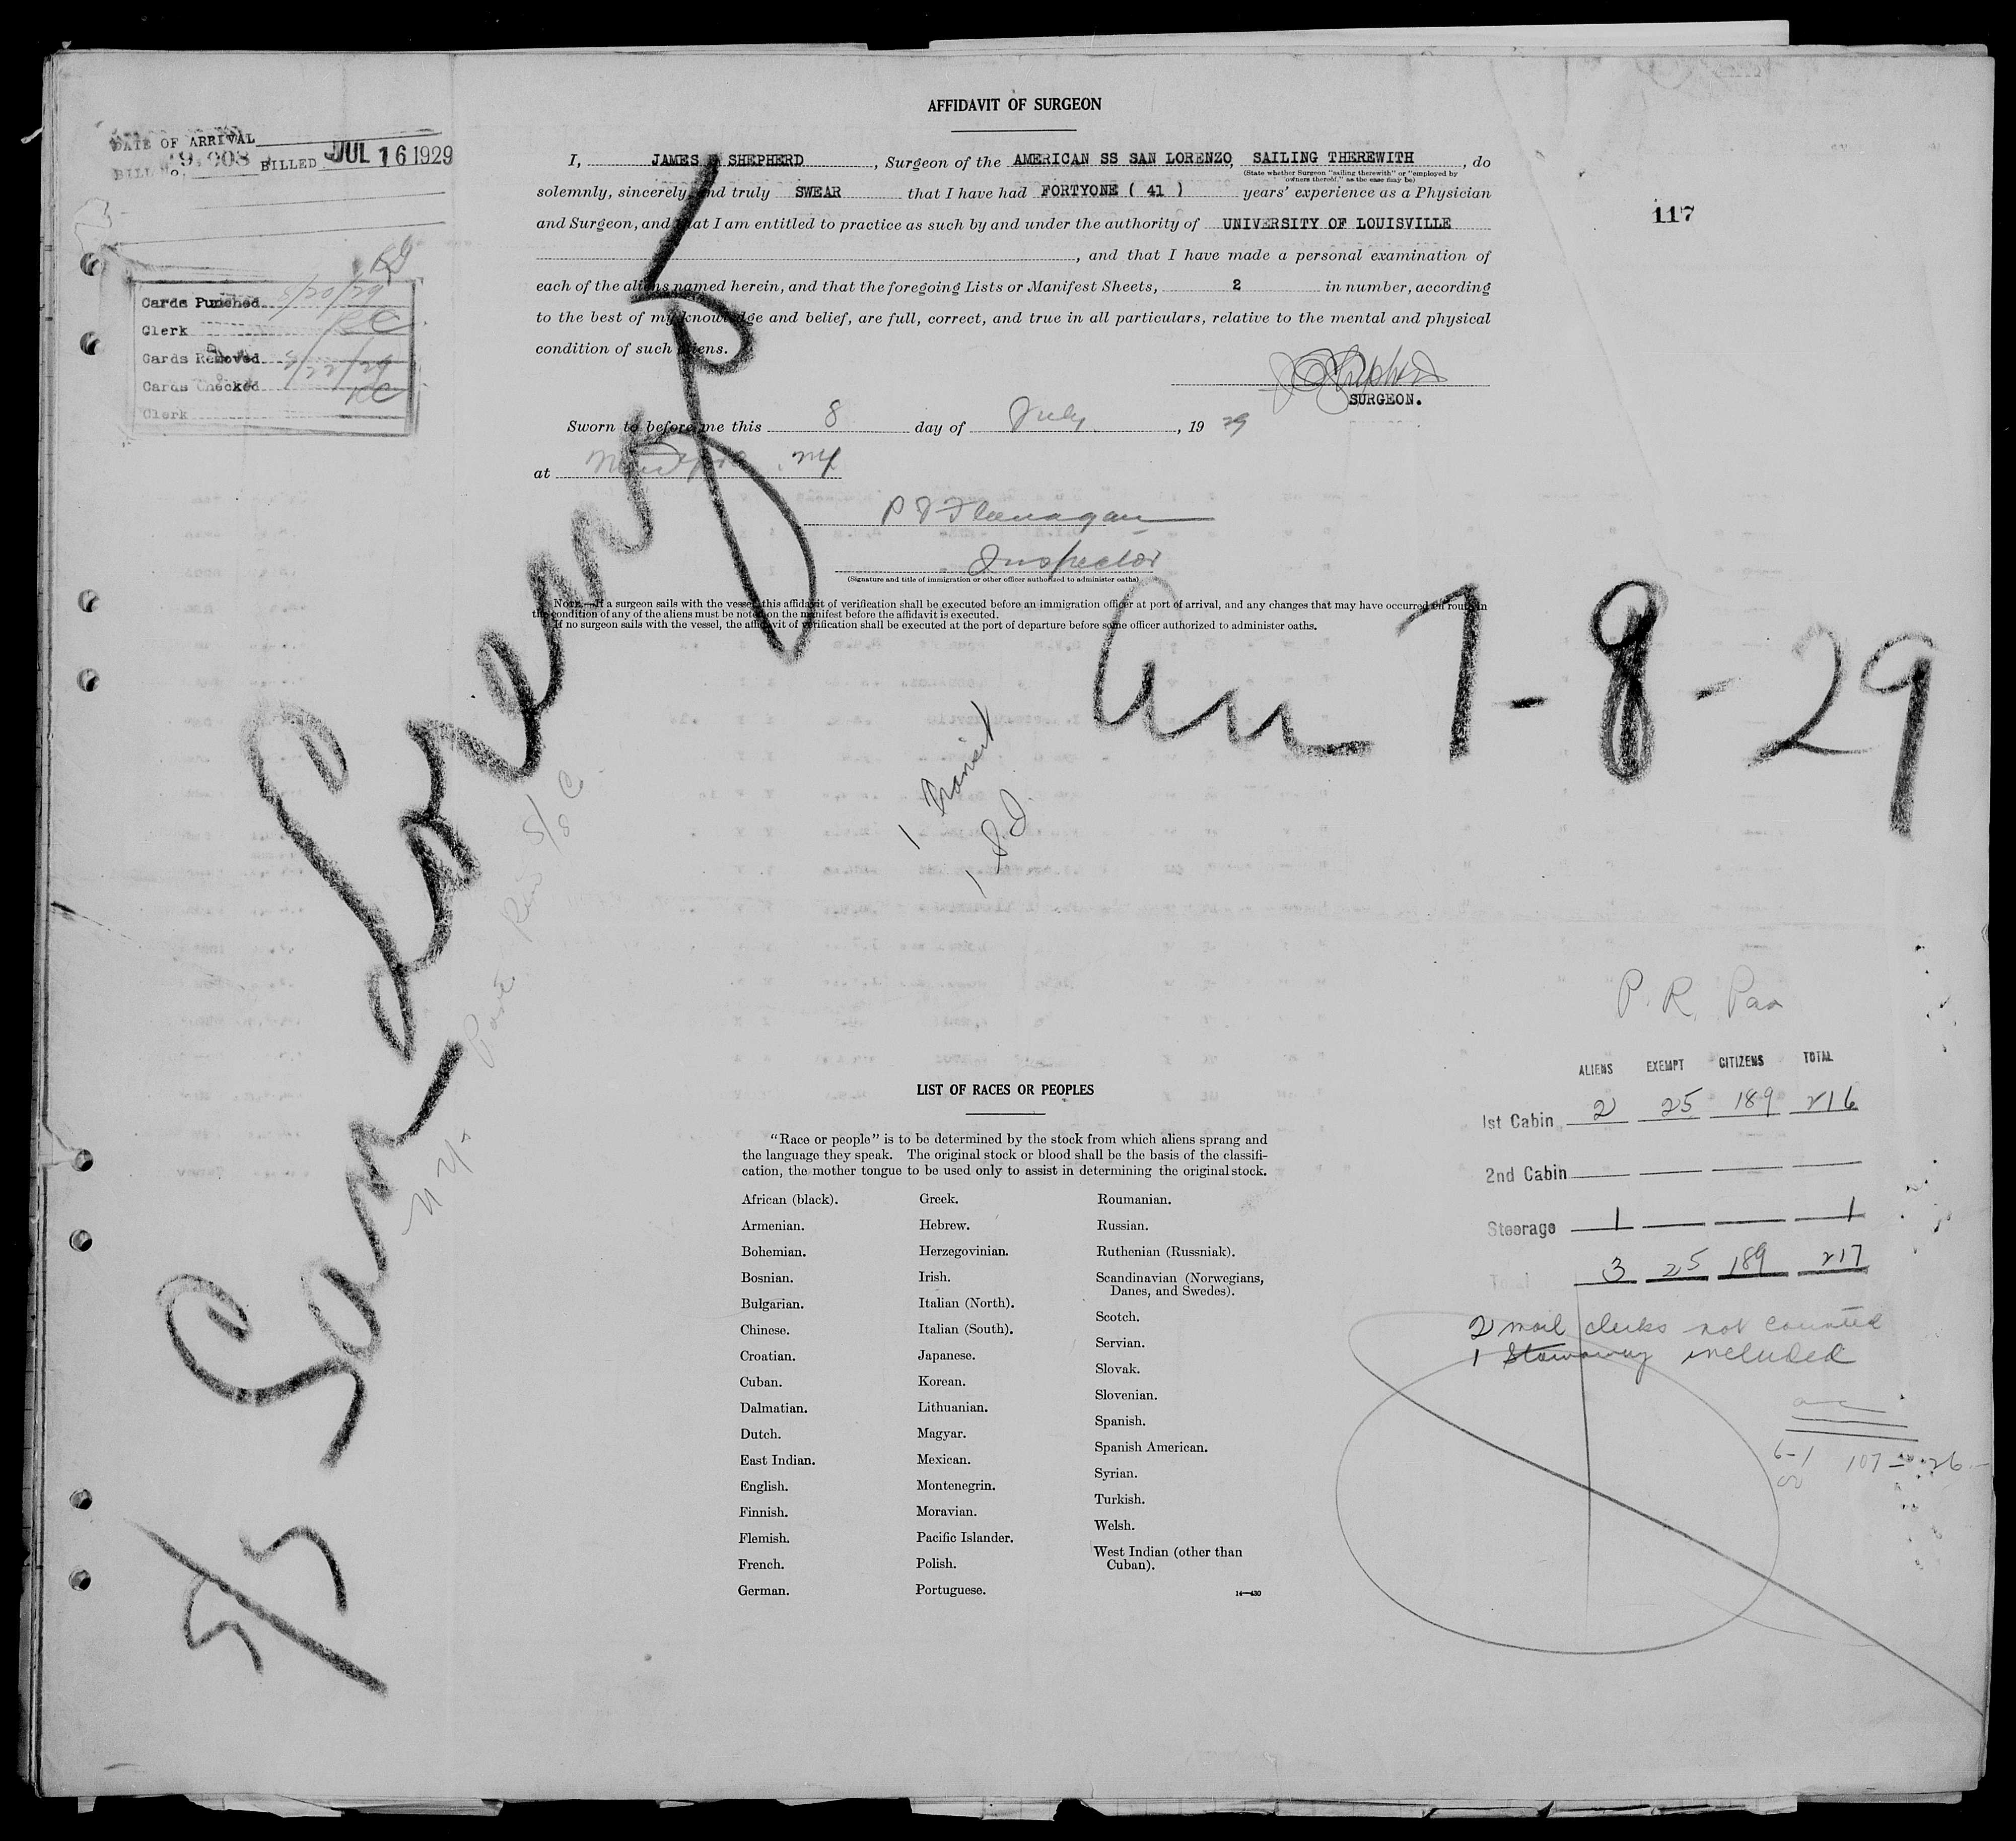 AFFIDAVIT OF SURGEON
DATE OF ARRIVAL
BILL No. BILLED JUL 16 1929
I, JAMES SHEPHERD, Surgeon of the AMERICAN SS SAN LORENZO, SAILING THEREWITH, do
(State whether Surgeon "sailing therewith" or "employed by
owners thereof," as the case may be)
solemnly, sincerely, and truly SWEAR that I have had FORTYONE ( 41 ) years' experience as a Physician
and Surgeon, and that I am entitled to practice as such by and under the authority of UNIVERSITY OF LOUISVILLE
, and that I have made a personal examination of
each of the aliens named herein, and that the foregoing Lists or Manifest Sheets, 2 in number, according
to the best of my knowledge and belief, are full, correct, and true in all particulars, relative to the mental and physical
condition of such aliens.
117
Cards Punched
Clerk RC
Cards Removed
Cards Checked RC
Clerk
SURGEON.
Sworn to before me this 8 day of July, 19 29
at
P J Flanagan
Inspector
(Signature and title of immigration or other officer authorized to administer oaths)
NOTE.—If a surgeon sails with the vessel, this affidavit of verification shall be executed before an immigration officer at port of arrival, and any changes that may have occurred en route in
the condition of any of the aliens must be noted on the manifest before the affidavit is executed.
If no surgeon sails with the vessel, the affidavit of verification shall be executed at the port of departure before some officer authorized to administer oaths.
S/S San Lorenzo
Arr 7-8-29
1 Transit
1 S.I.
N.Y. Porto Rico S/S Co
P. R. Pao
ALIENS EXEMPT CITIZENS TOTAL
1st Cabin 2 25 189 216
2nd Cabin — — — —
Steerage 1 — — 1
Total 3 25 189 217
2 mail clerks not counted
1 Stowaway included
LIST OF RACES OR PEOPLES
"Race or people" is to be determined by the stock from which aliens sprang and
the language they speak. The original stock or blood shall be the basis of the classifi-
cation, the mother tongue to be used only to assist in determining the original stock.
African (black).
Armenian.
Bohemian.
Bosnian.
Bulgarian.
Chinese.
Croatian.
Cuban.
Dalmatian.
Dutch.
East Indian.
English.
Finnish.
Flemish.
French.
German.
Greek.
Hebrew.
Herzegovinian.
Irish.
Italian (North).
Italian (South).
Japanese.
Korean.
Lithuanian.
Magyar.
Mexican.
Montenegrin.
Moravian.
Pacific Islander.
Polish.
Portuguese.
Roumanian.
Russian.
Ruthenian (Russniak).
Scandinavian (Norwegians,
Danes, and Swedes).
Scotch.
Servian.
Slovak.
Slovenian.
Spanish.
Spanish American.
Syrian.
Turkish.
Welsh.
West Indian (other than
Cuban).
14—430